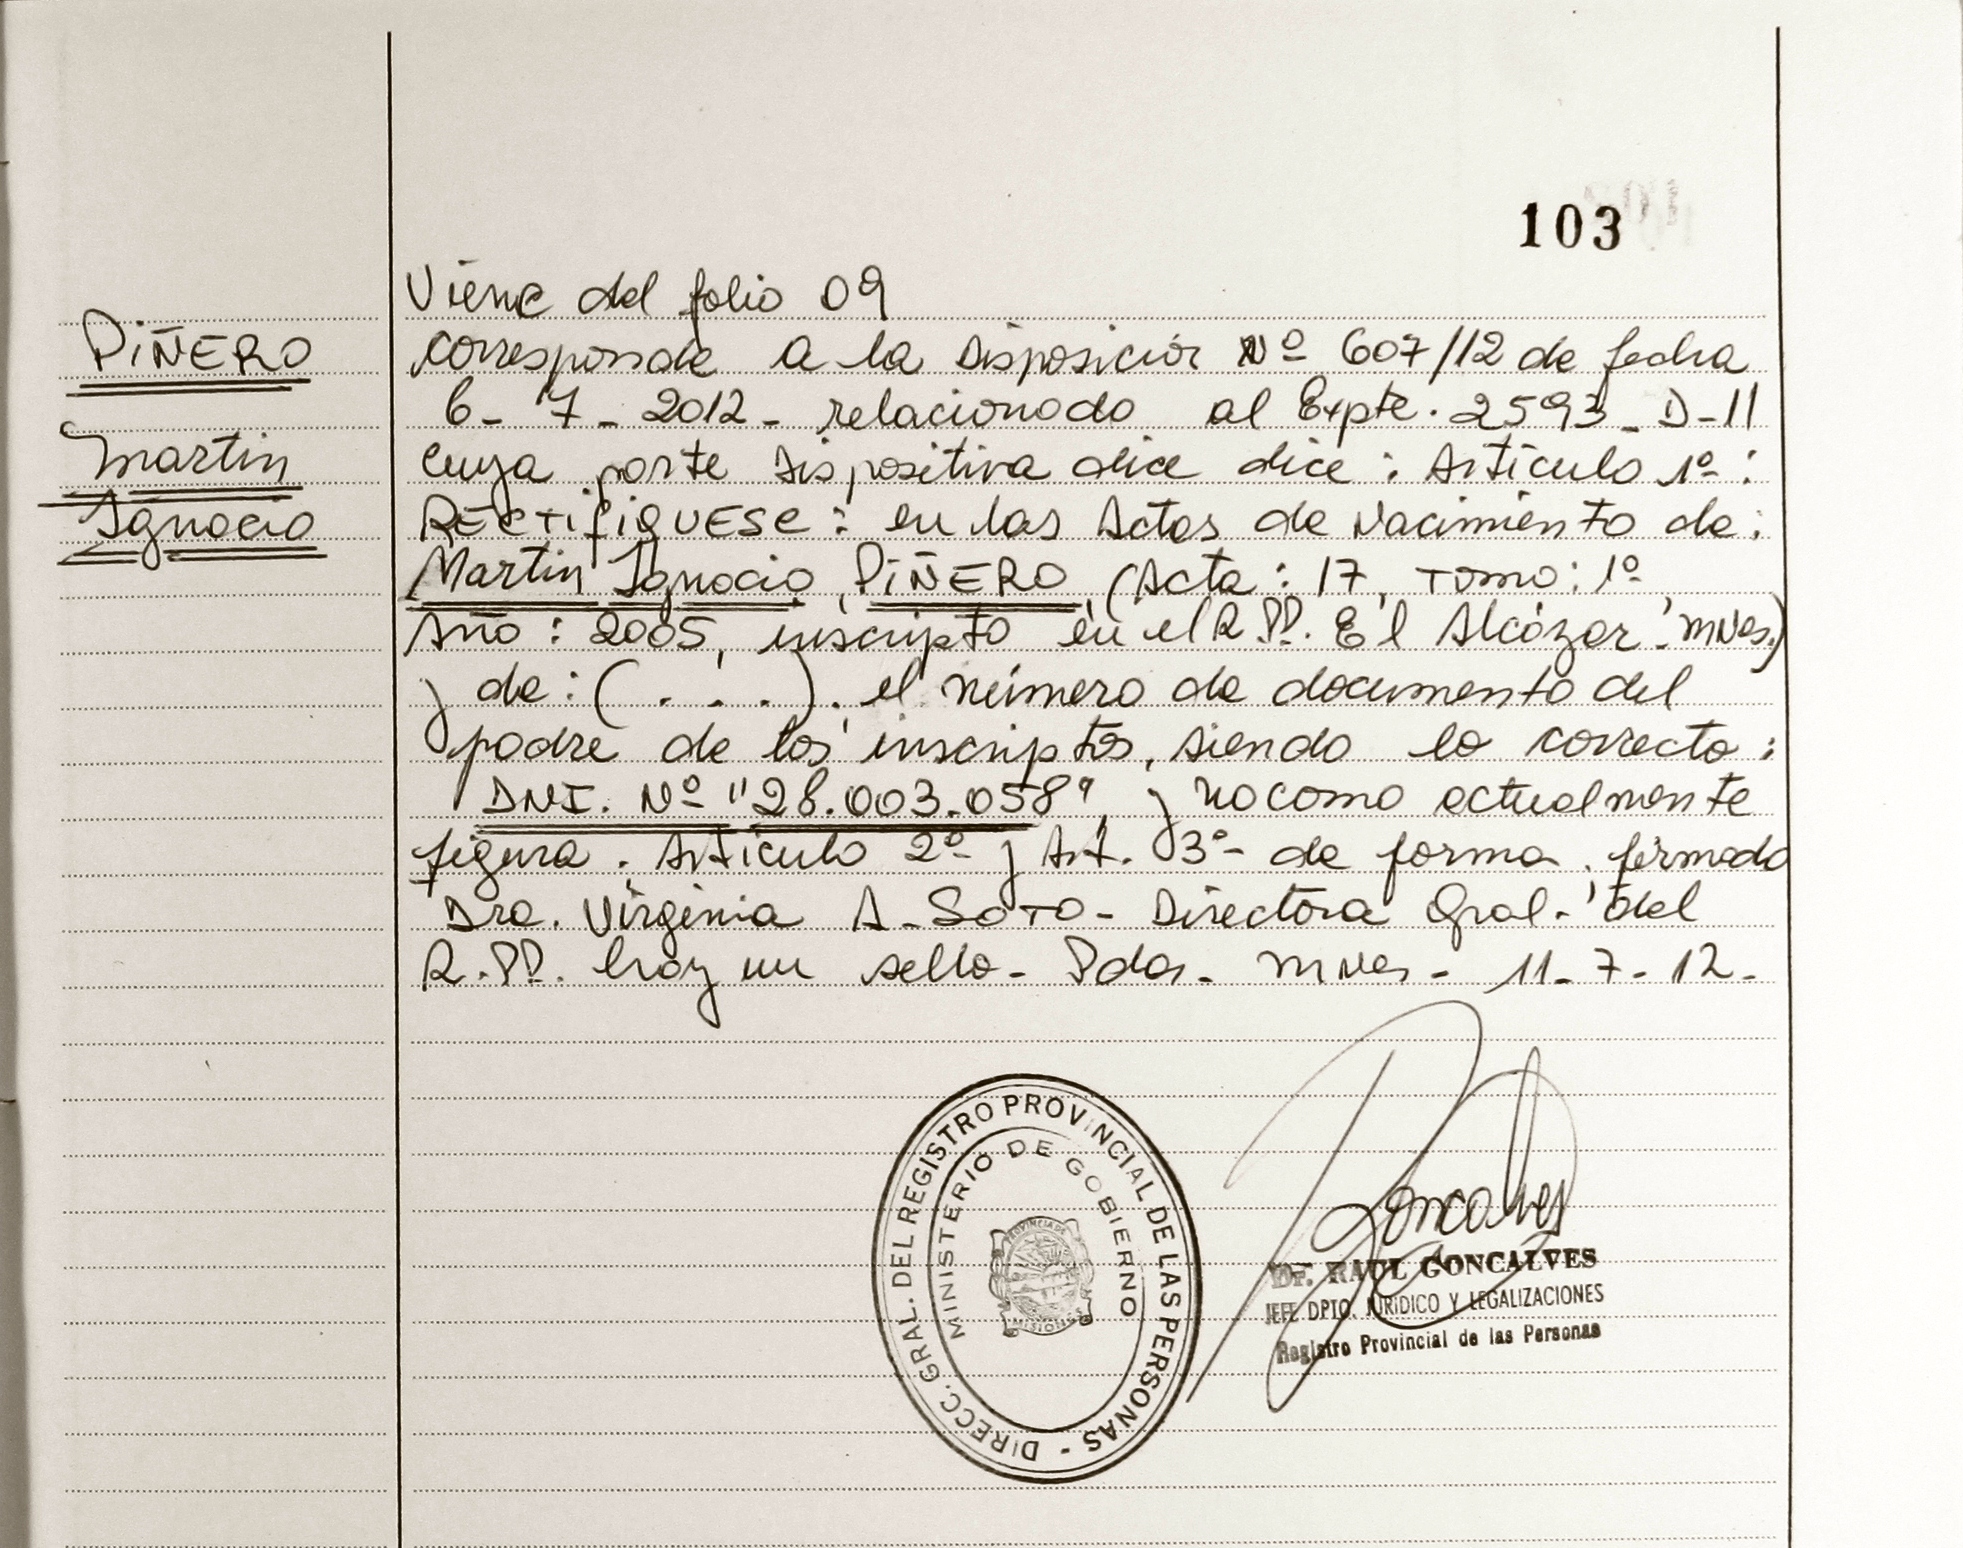 103
Viene del folio 09
PIÑERO
Martin
Ignacio
corresponde a la Disposición Nº 607/12 de fecha
6- 7- 2012- relacionado al Expte. 2593-D-11
cuya parte dispositiva dice dice: Artículo 1º:
RECTIFIQUESE: en las Actas de Nacimiento de:
Martin Ignacio, PIÑERO, (Acta: 17, Tomo: 1º
Año: 2005, inscripto en el R.PP. El Alcázar, mnes.)
y de: (. . .). el número de documento del
padre de los inscriptos, siendo lo correcto:
DNI. Nº "28.003.058", y no como actualmente
figura. Artículo 2º y Art. 3º- de forma. firmado
Dra. Virginia A- SOTO- Directora Gral.- del
R.PP. hay un sello- Pdas. mnes- 11-7-12-
DIRECC. GRAL. DEL REGISTRO PROVINCIAL DE LAS PERSONAS -
MINISTERIO DE GOBIERNO
PROVINCIA DE
MISIONES
Goncalves
Dr. RAUL GONCALVES
JEFE DPTO. JURIDICO Y LEGALIZACIONES
Registro Provincial de las Personas